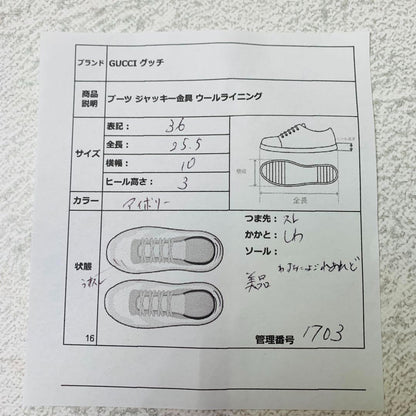 ブランド GUCCI グッチ
商品説明 ブーツ ジャッキー金具 ウールライニング
サイズ
表記： 36
全長： 25.5
横幅： 10
ヒール高さ： 3
全長
カラー アイボリー
状態
つま先：スレ
かかと：しわ
ソール：
わずかによごれあれど
美品
16
管理番号 1703